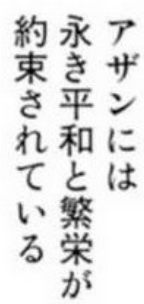 アザンには
永き平和と繁栄が
約束されている